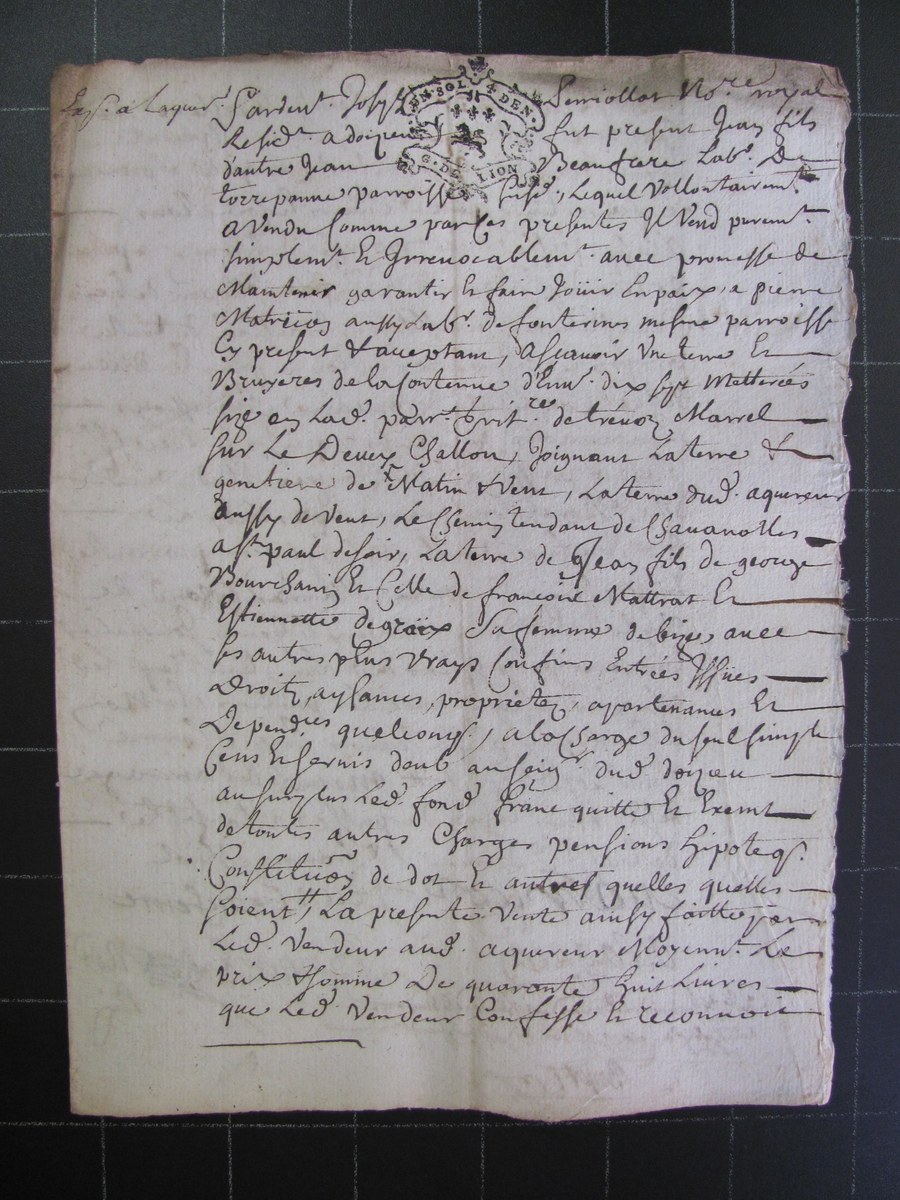 Exp. a Laquer.
Pardevt. Joseph Perriollat Nore. royal
Residt. a doizieu fut present Jean fils
dautre Jean Beaufrere Labr. De
torrepanne parroisse susd., Lequel Vollontairemt.
a Vendu Comme par Ces presentes Il Vend puremt.
simplemt. Et Irrevocablemt. avec promesse de
Maintenir garantir Et faire Joüir En paix, a pierre
aussy Labr. de fonterines mesme parroisse
Cy present & acceptant, Ascavoir Une terre Et
Bruyeres de la Contenue d'Envn. dix sept Metterées
size en Lad. parr. de trévoz Marrel
sur Le Devex Challon, Joignant La terre &
genetiere de Matin & Vent, La terre dud. aquereur
aussy de Vent, Le Chemin tendant de Chavanolles
a St. paul de soir, La terre de Jean fils de george
Bourchanin Et Celle de francois Mattrat Et
Estiennette degraix Sa femme de bize, avec
ses autres plus Vrays Confins Entrées Issües
Droits, aysances, proprietez, apartenances Et
Dependces quelconqs., a la Charge du seul simple
Cens Et servis deub au seigr. dud. doizieu
au surplus Led. fond franc quitte Et Exemt
de toutes autres Charges pensions hipoteqs.
Constitution de dot Et autres quelles quelles
soient, La presente Vente ainsy faitte par
Led. Vendeur aud. aquereur Moyent. Le
prix & somme De quarante huit Livres
que Led. Vendeur Confesse Et reconnoit
GEN. SOL. 4 DEN.
G. DE LION